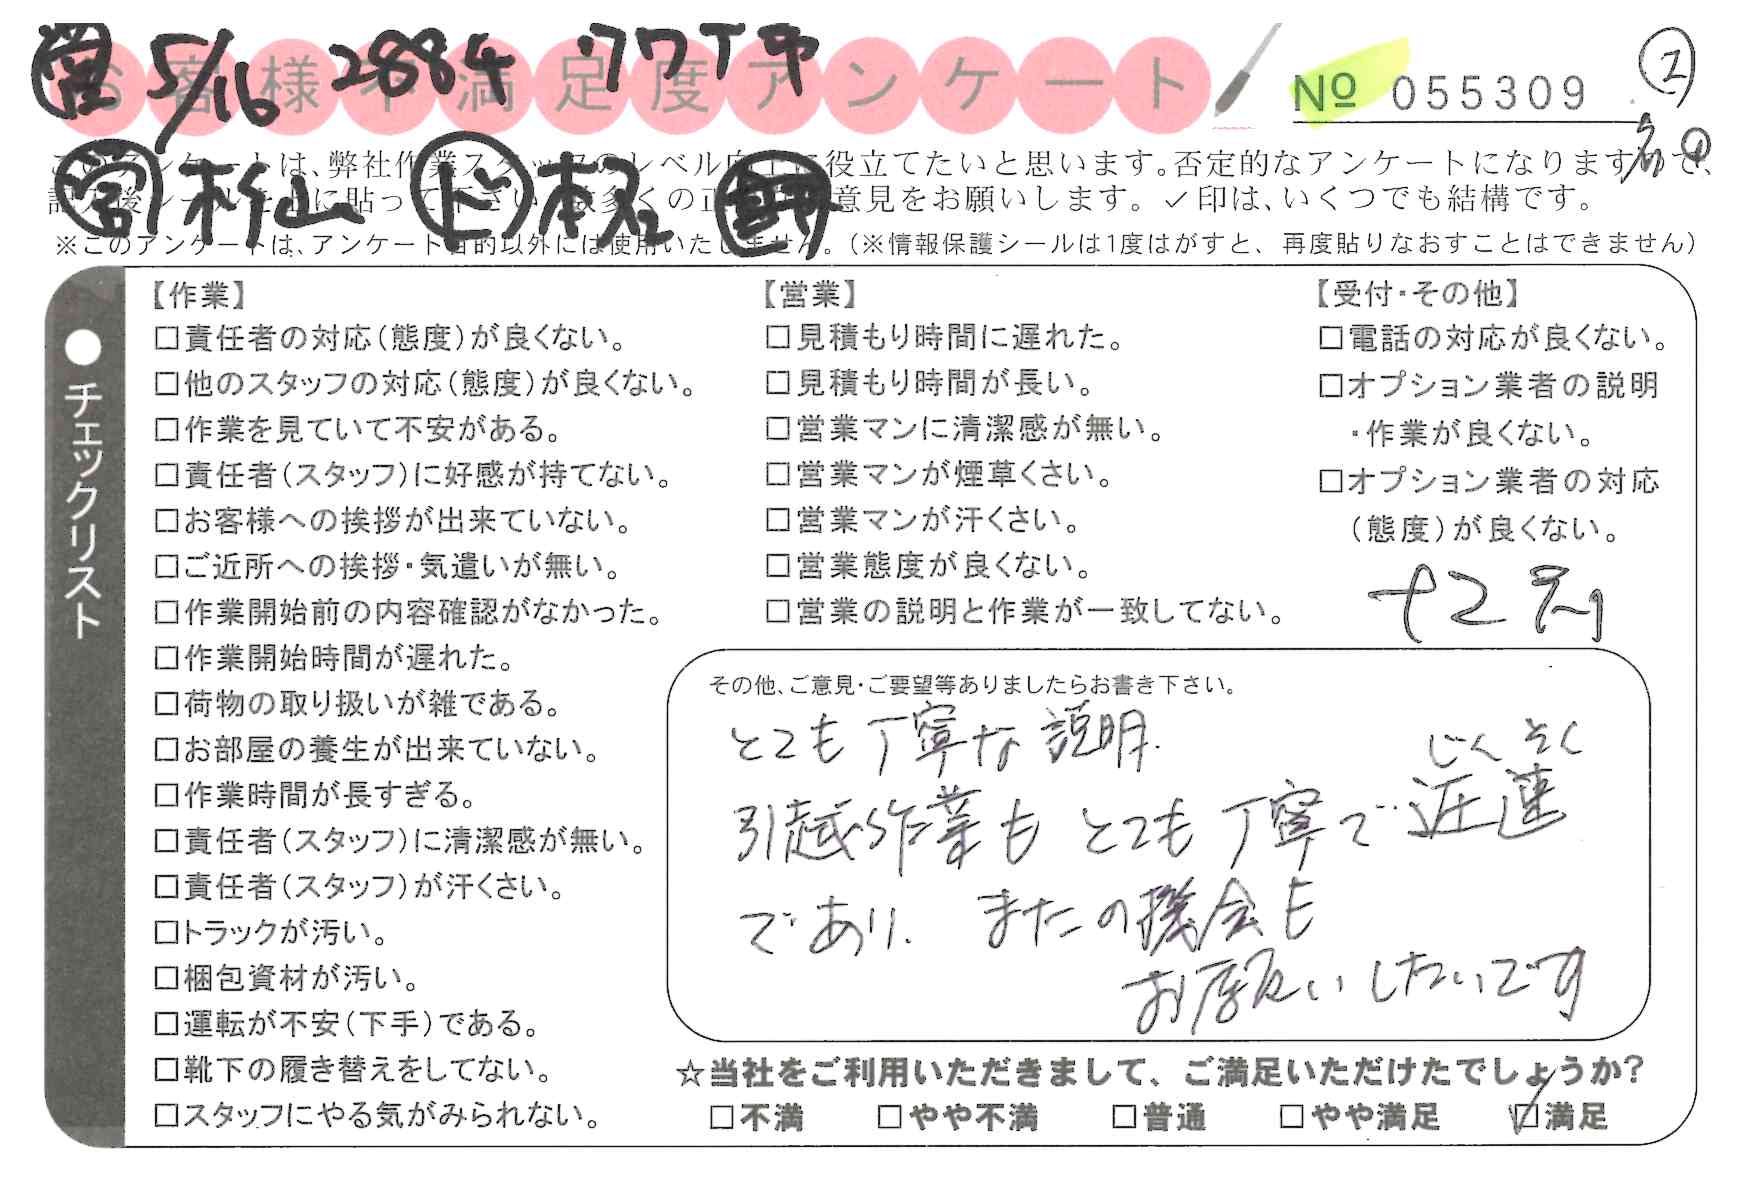 5/16 2884
お客様不満足度アンケート
№ 055309
②
このアンケートは、弊社作業スタッフのレベル向上に役立てたいと思います。否定的なアンケートになりますので、
記入後シールを上に貼って下さい。数多くの正直な意見をお願いします。✓印は、いくつでも結構です。
営 杉山 ド
※このアンケートは、アンケート目的以外には使用いたしません。(※情報保護シールは1度はがすと、再度貼りなおすことはできません)
●チェックリスト
【作業】
□責任者の対応(態度)が良くない。
□他のスタッフの対応(態度)が良くない。
□作業を見ていて不安がある。
□責任者(スタッフ)に好感が持てない。
□お客様への挨拶が出来ていない。
□ご近所への挨拶・気遣いが無い。
□作業開始前の内容確認がなかった。
□作業開始時間が遅れた。
□荷物の取り扱いが雑である。
□お部屋の養生が出来ていない。
□作業時間が長すぎる。
□責任者(スタッフ)に清潔感が無い。
□責任者(スタッフ)が汗くさい。
□トラックが汚い。
□梱包資材が汚い。
□運転が不安(下手)である。
□靴下の履き替えをしてない。
□スタッフにやる気がみられない。
【営業】
□見積もり時間に遅れた。
□見積もり時間が長い。
□営業マンに清潔感が無い。
□営業マンが煙草くさい。
□営業マンが汗くさい。
□営業態度が良くない。
□営業の説明と作業が一致してない。
【受付・その他】
□電話の対応が良くない。
□オプション業者の説明
・作業が良くない。
□オプション業者の対応
(態度)が良くない。
その他、ご意見・ご要望等ありましたらお書き下さい。
とても丁寧な説明.
じくそく
引越作業もとても丁寧で迅速
であり、またの機会も
お願いしたいです
☆当社をご利用いただきまして、ご満足いただけたでしょうか?
□不満 □やや不満 □普通 □やや満足 ☑満足